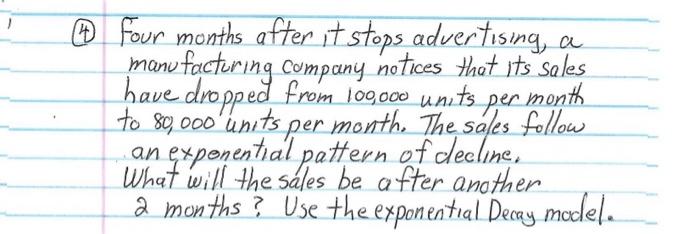 ④ Four months after it stops advertising, a
manufacturing company notices that its sales
have dropped from 100,000 units per month
to 80,000 units per month. The sales follow
an exponential pattern of decline.
What will the sales be after another
2 months? Use the exponential Decay model.